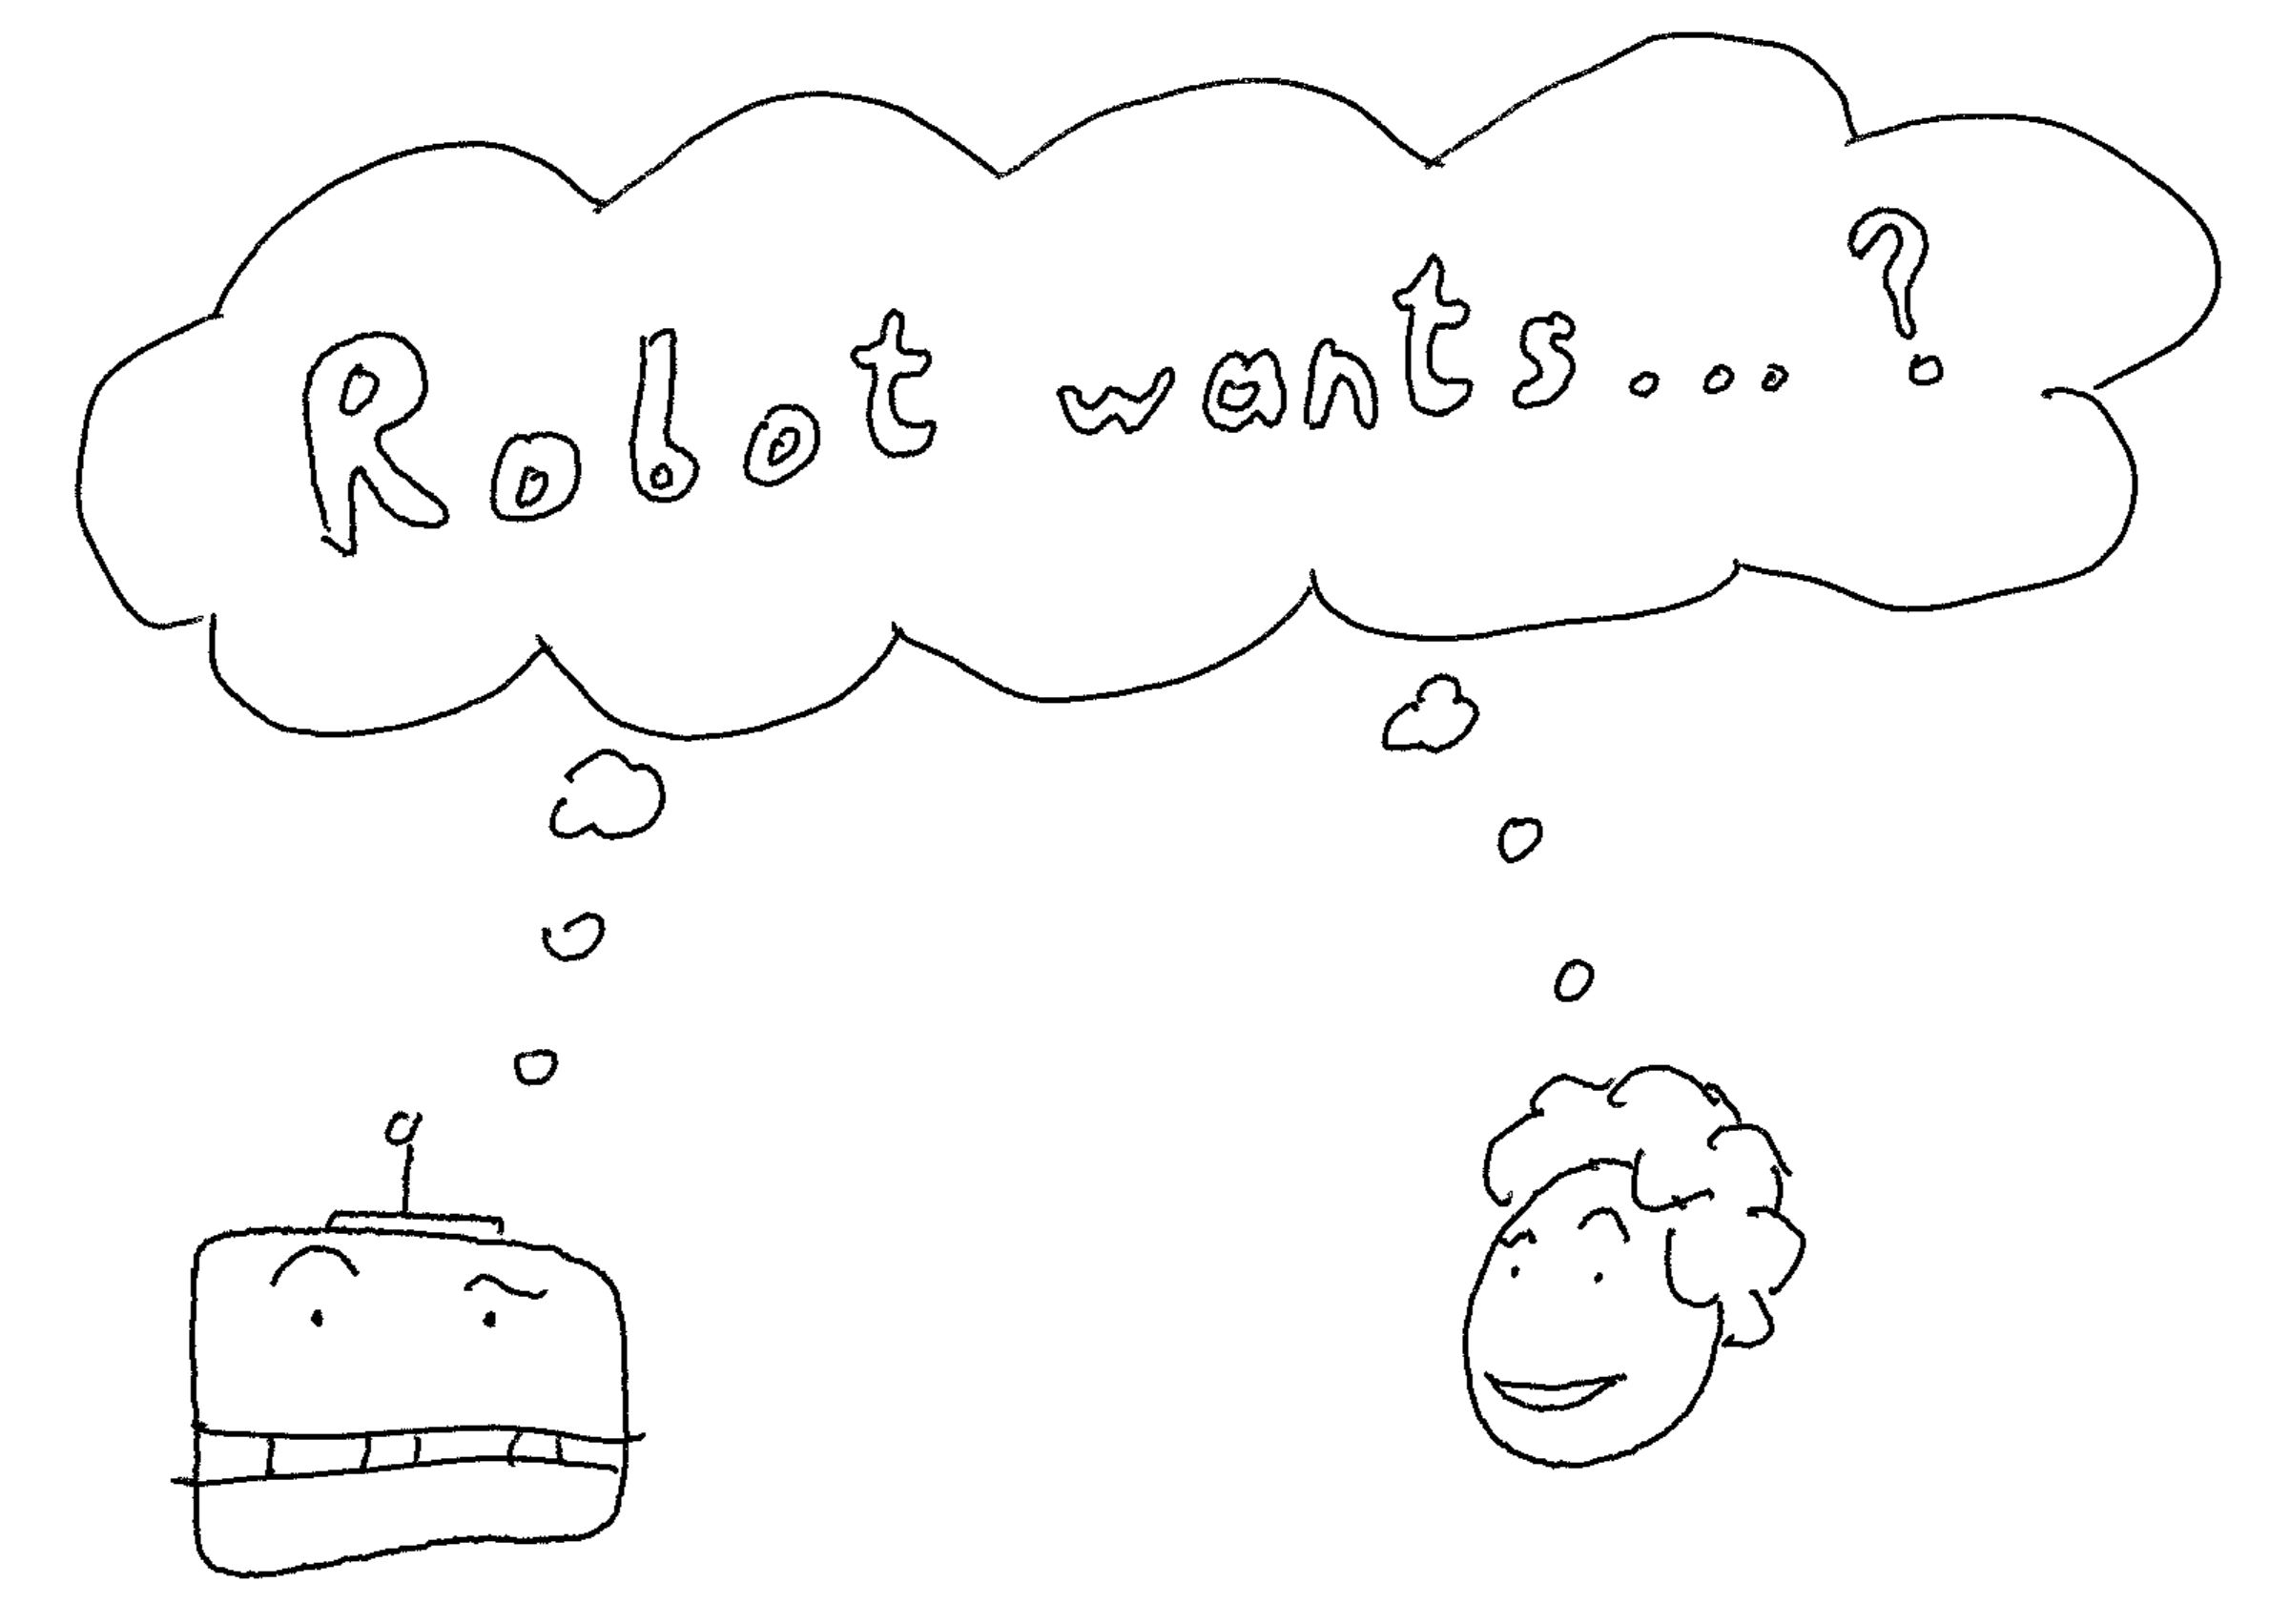 Robot wants...?